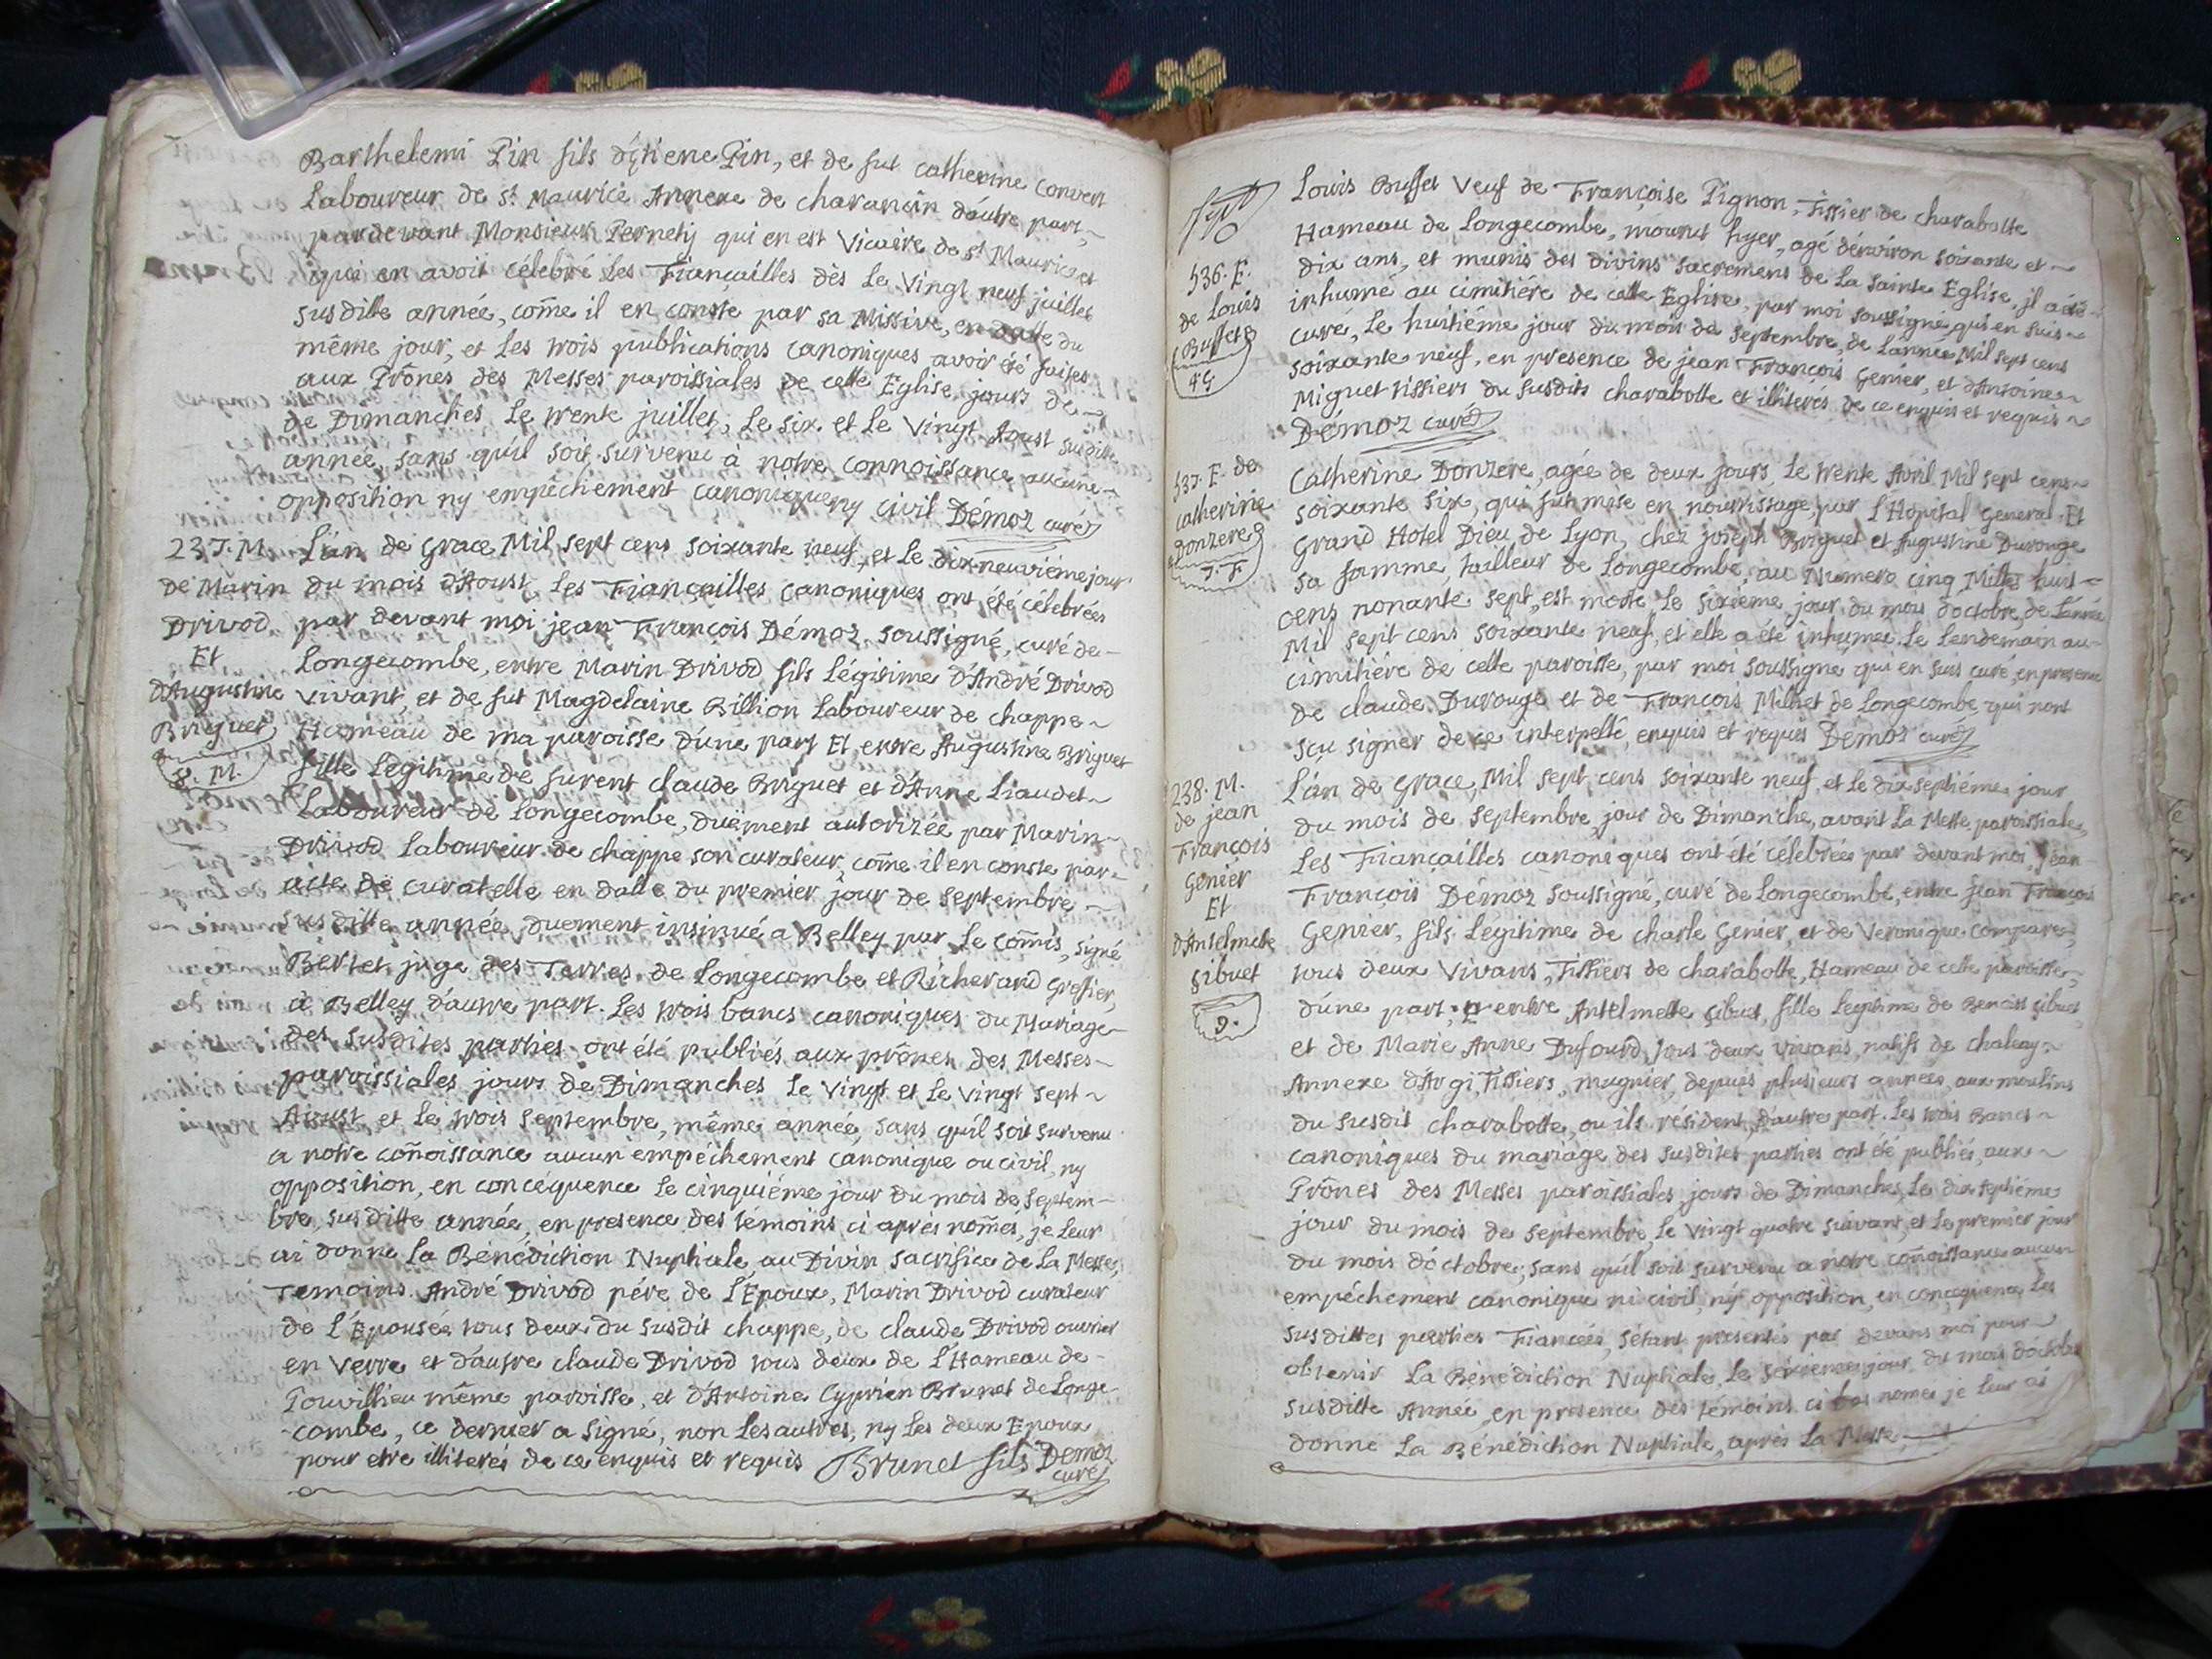 Barthelemi Pin fils d'Etiene Pin, et de fut catherine Convert
Laboureur de St Maurice Annexe de charancin d'autre part,
pardevant Monsieur Pernety qui en est Vicaire de St Maurice et
qui en avoit célebré Les Fiançailles dès Le Vingt neuf juillet
susditte année, come il en conste par sa Missive, en datte du
même jour, et Les trois publications canoniques avoir été faites
aux Prônes des Messes paroissiales de cette Eglise, jours de
de Dimanches Le trente juillet, Le six et Le Vingt Aoust susditte
année, sans qu'il soit survenu à notre connoissance aucune
opposition ny empêchement canonique ny civil Démoz curé
237. M. L'an de Grace, Mil sept cens soixante neuf, et Le dix neuviéme jour
de Marin du mois d'Aoust, Les Fiançailles canoniques ont été célebrées
Drivod par devant moi jean François Démoz soussigné, curé de
Et Longecombe, entre Marin Drivod fils Légitime d'André Drivod
d'Augustine vivant, et de fut Magdelaine Billion Laboureur de chappe
Briguet Hameau de ma paroisse d'une part Et entre Augustine Briguet
8. M. fille Légitime de furent claude Briguet et d'Anne Liaudet
Laboureur de Longecombe, duement autorizée par Marin
Drivod Laboureur de chappe son curateur, come il en conste par
acte de curatelle en datte du premier jour de septembre
susditte année, duement insinué a Belley par Le comis, signé
Bertet juge des Terres de Longecombe et Richerand Greffier,
à Belley d'autre part. Les trois bancs canoniques du Mariage
des susdites parties ont été publiés aux prônes des Messes
paroissiales jours de Dimanches Le vingt et Le vingt sept
Aoust, et Le trois septembre, même année, sans qu'il soit survenu
a notre conoissance aucun empéchement canonique ou civil, ny
opposition, en concéquence Le cinquiéme jour du mois de septem-
bre, susditte année, en presence des témoins ci aprés només, je Leur
ai donné La Bénédiction Nuptiale, au Divin sacrifice de La Messe,
Temoins André Drivod pére de L'Epoux, Marin Drivod curateur
de L'Epousée tous deux du susdit chappe, de claude Drivod ouvrier
en verre et d'autre claude Drivod tous deux de L'Hameau de
Pouvillieu même paroisse, et d'Antoine Cyprien Brunet de Longe-
combe, ce dernier a signé, non Les autres, ny Les deux Epoux
pour etre illiterés de ce enquis et requis Brunet fils Démoz
curé
536. F.
de Louis
Buffet
49
Louis Buffet Veuf de Françoise Pignon, Tissier de charabotte
Hameau de Longecombe, mourut hyer, agé d'environ soixante et
dix ans, et munis des divins sacremens de La sainte Eglise, il a été
inhumé au cimitiére de cette Eglise, par moi soussigné qui en suis
curé, Le huitiéme jour du mois de septembre, de L'année Mil sept cens
soixante neuf, en presence de jean François Genier, et d'Antoine
Miguet tissiers du susdits charabotte et illiterés de ce enquis et requis
Démoz curé
537. F. de
catherine
Donzere
7. F
Catherine Donzere, agée de deux jours, Le trente Avril Mil sept cens
soixante six, qui fut mise en nourrissage par L'Hopital General, Et
Grand Hotel Dieu de Lyon, chez joseph Briguet et Augustine Durouge
sa famme, tailleur de Longecombe, au Numero cinq Milles huit
cens nonante sept, est morte Le sixiéme jour du mois d'octobre, de L'année
Mil sept cens soixante neuf, et elle a été inhumée Le Lendemain au
cimitiére de cette paroisse, par moi soussigné qui en suis curé, en presence
de claude Durouge et de François Milliet de Longecombe, qui n'ont
sçu signer de ce interpellé, enquis et requis Démoz curé
238. M.
de jean
François
Genier
Et
d'Antelmete
Sibuet
9.
L'an de Grace, Mil sept cens soixante neuf et Le dix septiéme jour
du mois de septembre, jour de Dimanche, avant La Messe paroissiale,
Les Fiançailles canoniques ont été célebrées par devant moi, Jean
François Démoz soussigné, curé de Longecombe, entre jean François
Genier, fils Légitime de charle Genier, et de Veronique Compare,
tous deux Vivans, Tissiers de charabotte, Hameau de cette paroisse,
d'une part, et entre Antelmette Sibuet, fille Legitime de Benoist Sibuet
et de Marie Anne Dufourd, tous deux vivans, natifs de chaley
Annexe d'Argi Tissiers, mugnier, depuis plusieurs années, aux moulins
du susdit charabotte, ou ils résident, d'autre part. Les trois Bancs
canoniques du mariage des susdites parties ont été publiés, aux
Prônes des Messes paroissiales jours de Dimanches, Le dix septiéme
jour du mois de septembre Le vingt quatre suivant, et Le premier jour
du mois d'octobre, sans qu'il soit survenu a notre conoissance aucun
empéchement canonique ni civil, ny opposition, en concequence Les
susdittes parties Fiancées, s'étant presentés par devant moi pour
obtenir La Bénédiction Nuptiale, Le jour du mois d'octobre
susditte Année, en presence des témoins ci bas només je Leur ai
donné La Bénédiction Nuptiale, aprés La Messe